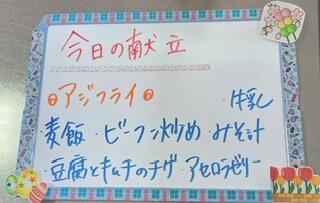 今日の献立
アジフライ ・牛乳
麦飯・ビーフン炒め・みそ汁
・豆腐とキムチのチゲ・アセロラゼリー